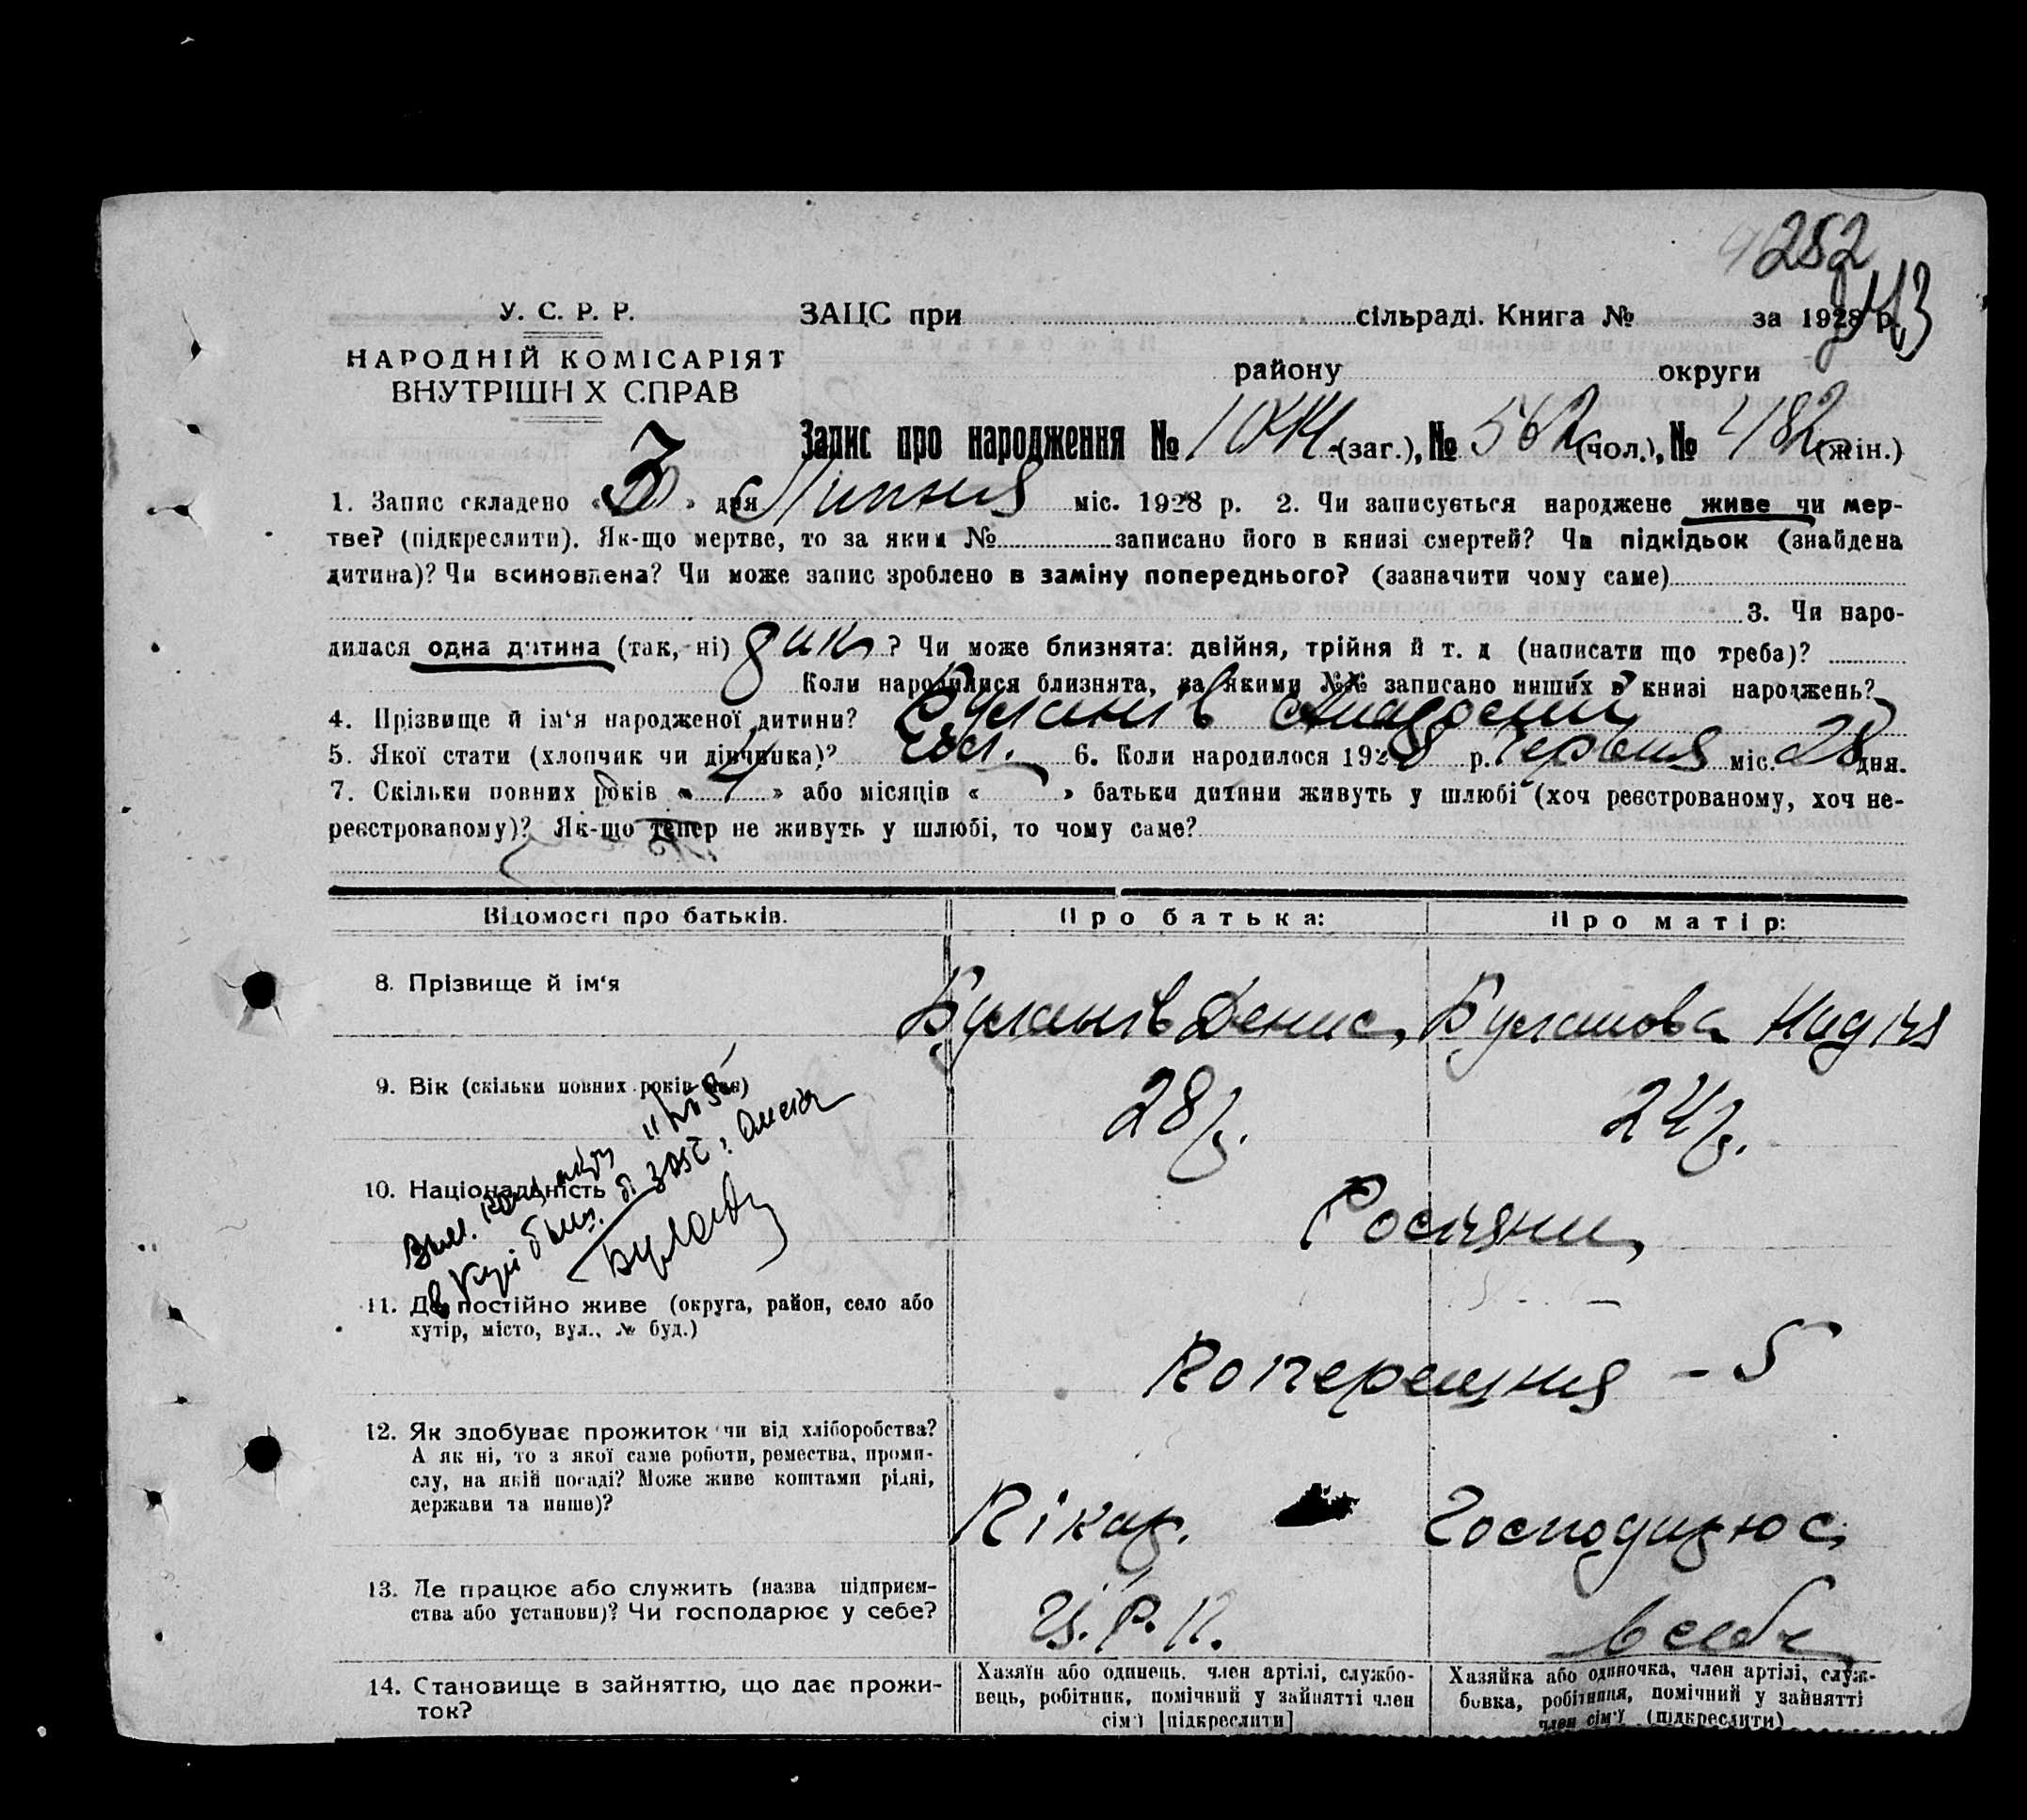 282
243
У. С. Р. Р.
НАРОДНІЙ КОМІСАРІЯТ
ВНУТРІШН Х СПРАВ
ЗАЦС при сільраді. Книга № за 1928 р.
району округи
Запис про народження № 1044 (заг.), № 562 (чол.), № 482 (жін.)
1. Запис складено « 3 » дня Липня міс. 1928 р. 2. Чи записується народжене живе чи мер-
тве? (підкреслити). Як-що мертве, то за яким № записано його в книзі смертей? Чи підкідьок (знайдена
дитина)? Чи всиновлена? Чи може запис зроблено в заміну попереднього? (зазначити чому саме)
3. Чи наро-
дилася одна дитина (так, ні) так ? Чи може близнята: двійня, трійня й т. д (написати що треба)?
Коли народилися близнята, за якими №№ записано инших в книзі народжень?
4. Прізвище й ім'я народженої дитини? Буланів
5. Якої стати (хлопчик чи дівчинка)? чол. 6. Коли народилося 1928 р. Червня міс. 28 дня.
7. Скільки повних років « » або місяців « » батьки дитини живуть у шлюбі (хоч реєстрованому, хоч не-
реєстрованому)? Як-що тепер не живуть у шлюбі, то чому саме?
Відомості про батьків. Про батька: Про матір:
8. Прізвище й ім'я Буланів Денис, Буланова Надія
9. Вік (скільки повних років має) 28 р. 24 р.
10. Національність Росіяни
11. Де постійно живе (округа, район, село або
хутір, місто, вул., № буд.)
Коперещня - 5
12. Як здобуває прожиток чи від хліборобства?
А як ні, то з якої саме роботи, ремества, проми-
слу, на якій посаді? Може живе коштами рідні,
держави та инше)?
Пікар. Господарює
13. Де працює або служить (назва підприєм-
ства або установи)? Чи господарює у себе?
Ц. Р. К. в себе
14. Становище в зайняттю, що дає прожи-
ток?
Хазяїн або одинець, член артілі, службо-
вець, робітник, помічний у зайнятті член
сім'ї [підкреслити]
Хазяйка або одиночка, член артілі, служ-
бовка, робітниця, помічний у зайнятті
член сім'ї (підкреслити)